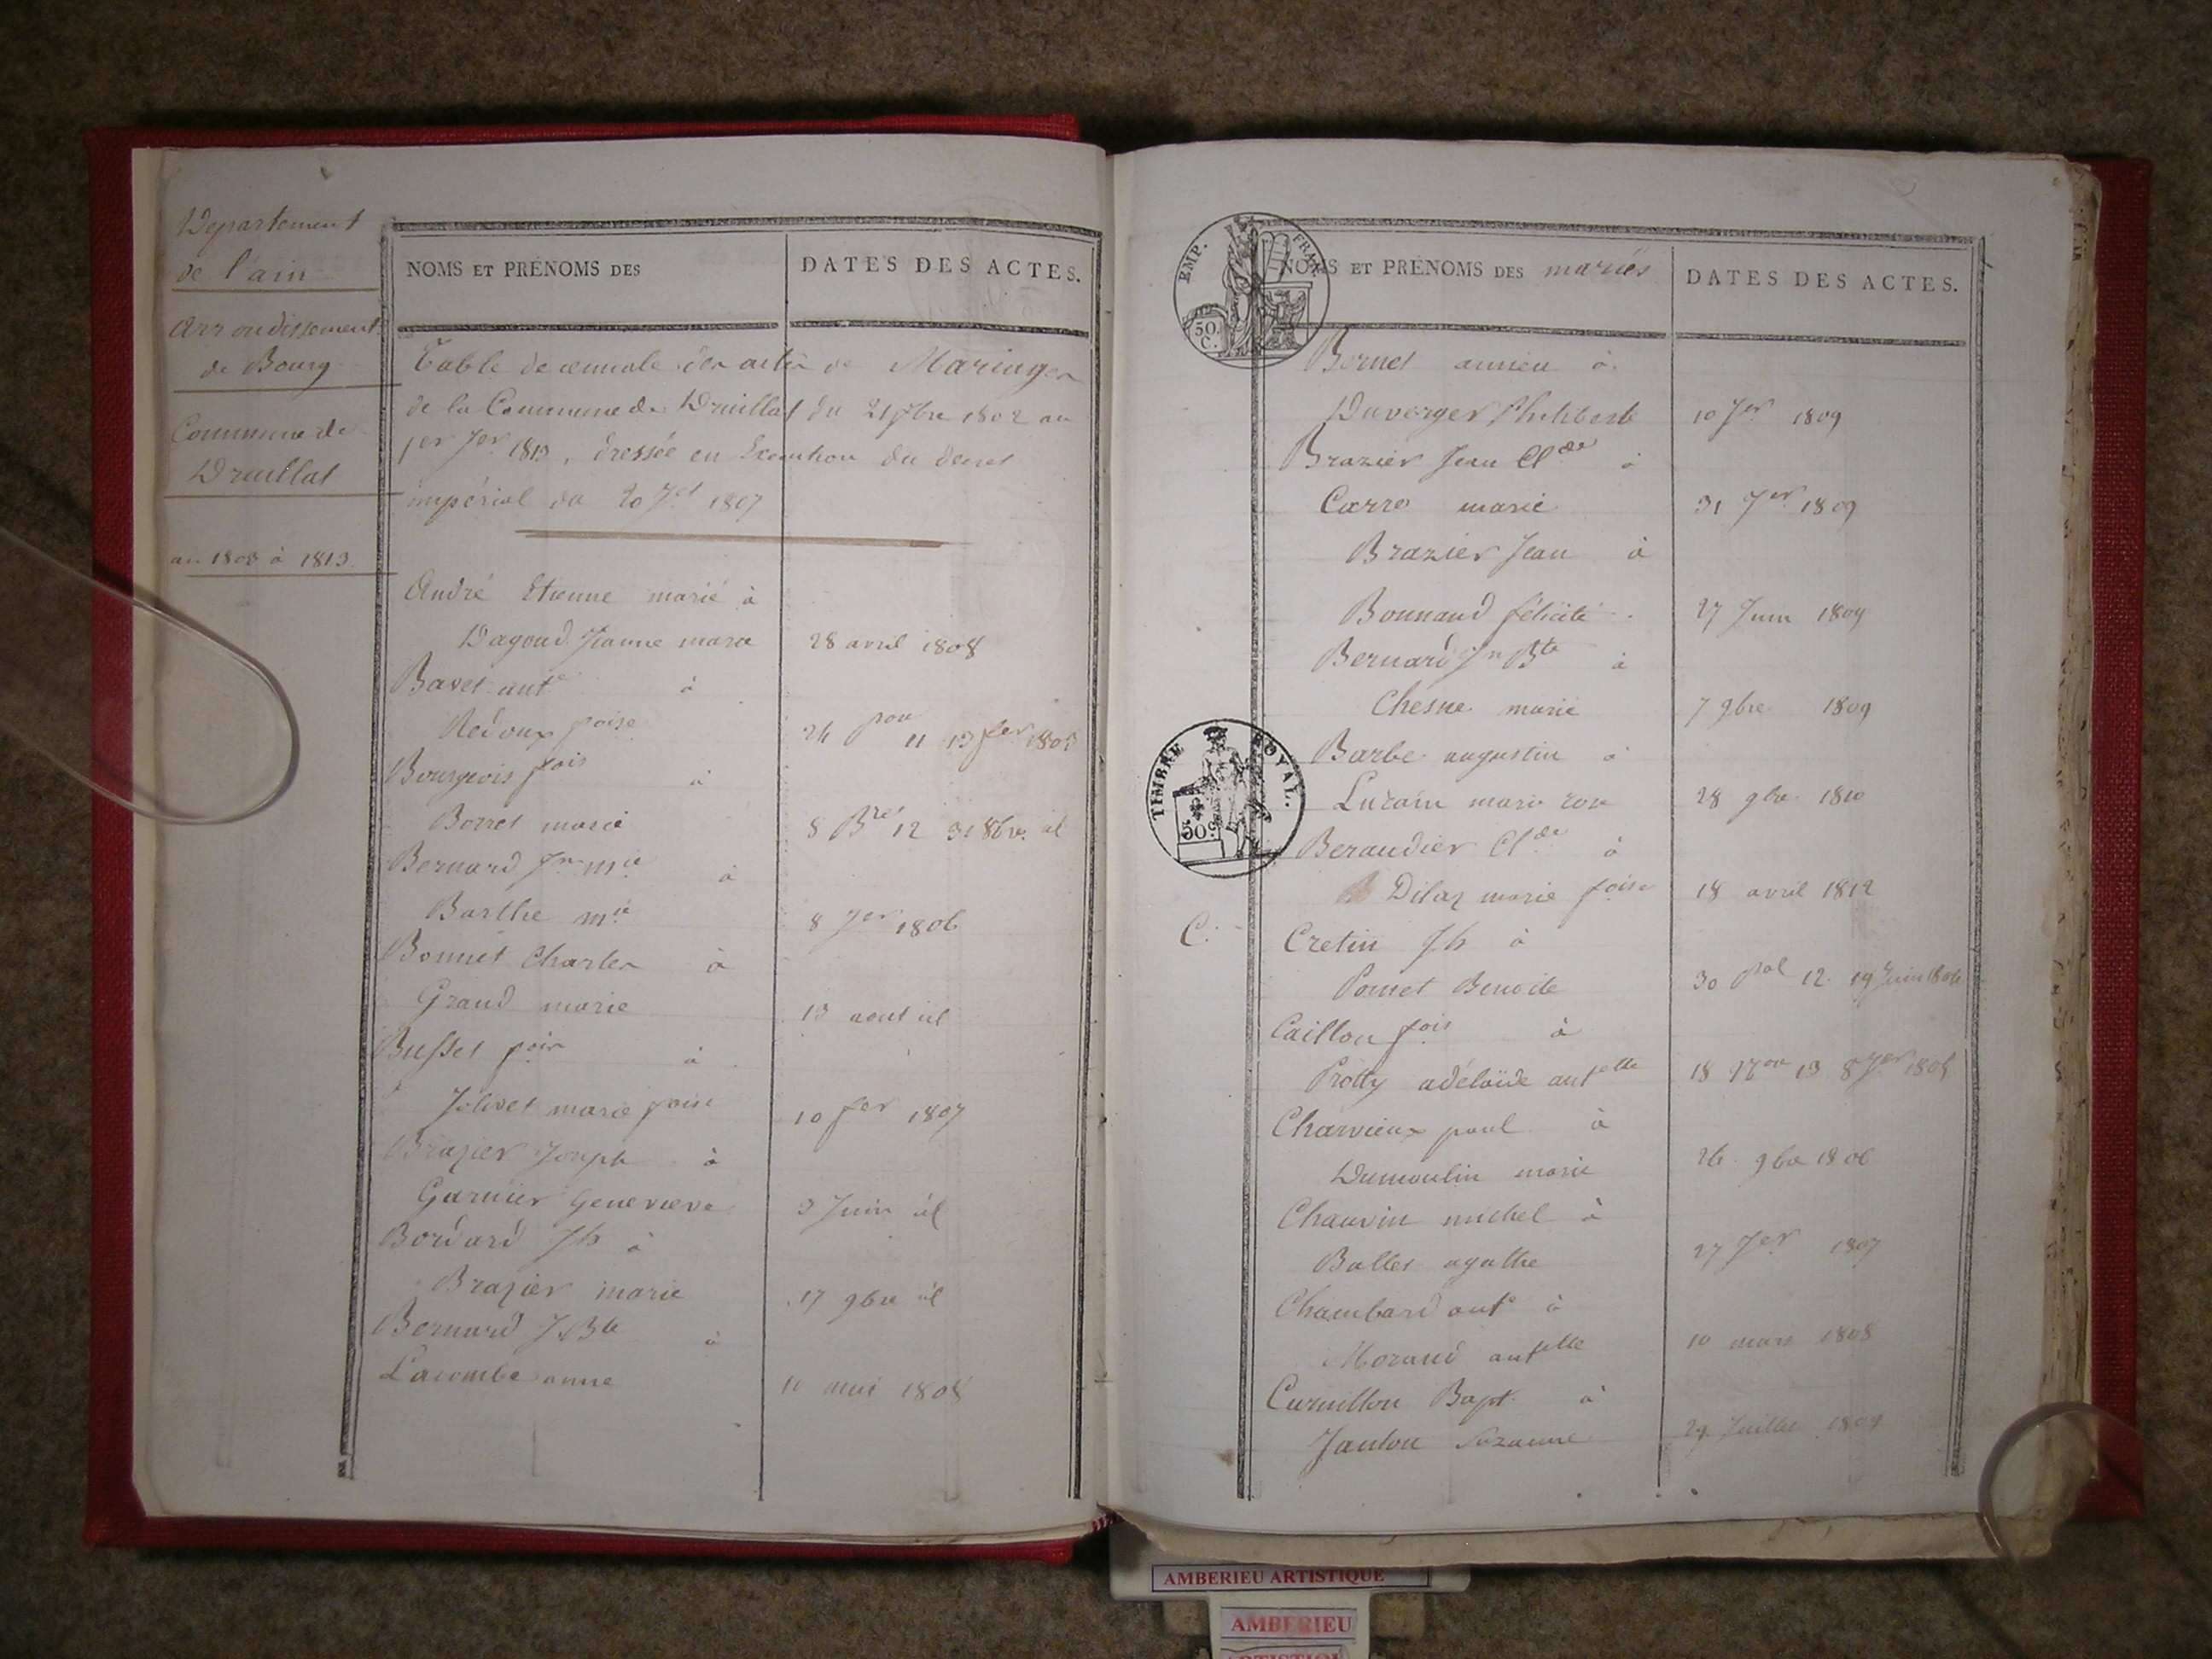 Departement
de l'ain
arrondissement
de Bourg
Commune de
Druillat
an 1803 à 1813.
NOMS ET PRÉNOMS DES
DATES DES ACTES.
Table decennale des actes de Mariages
de la Commune de Druillat du 21 7bre 1802 au
1er Jer 1813, dressée en Execution du decret
impérial du 20 Jet 1807
André Etienne marié à
Dagoud Jeanne marie 28 avril 1808
Bavet ante à
Redoux foise 24
Bourgeois fois à
Borret marie 8 Bre 12
Bernard Jn mie à
Barthe mie 8 Jer 1806
Bonnet Charles à
Grand marie 13 aout id
Buffet fois à
Jolivet marie foise 10 fer 1807
Brazier Joseph à
Garnier Genevieve 3 Juin id
Bordard Jh à
Brazier marie 17 9bre id
Bernard J Bte à
Lacombe anne 10 mai 1808
EMP. FRAN.
50. C.
NOMS ET PRÉNOMS DES mariés
DATES DES ACTES.
Bernet à
Duverger Philibert 10 Jer 1809
Brazier Jean Clde à
Carre marie 31 Jer 1809
Brazier Jean à
Bonnand félicité 27 Juin 1809
Bernard Jn Bte à
Chesne marie 7 9bre 1809
TIMBRE ROYAL.
50 c
Barbe augustin à
Luzain marie rose 28 9bre 1810
Beraudier Clde à
Dilaz marie foise 18 avril 1812
C.
Cretin Jh à
Pomet Benoite 30 pal 12. 19 Juin 1804
Caillon fois à
Protty adélaïde antette 18 13 8 Jer 1805
Charvieux paul à
Dumoulin marie 26 9bre 1806
Chauvin michel à
Ballet agathe 27 Jer 1807
Chambard ante à
Morand antette 10 mars 1808
Curnillon Bapt à
Janton Suzanne 29 Juillet 1809
AMBERIEU ARTISTIQUE
AMBERIEU
ARTISTIQUE